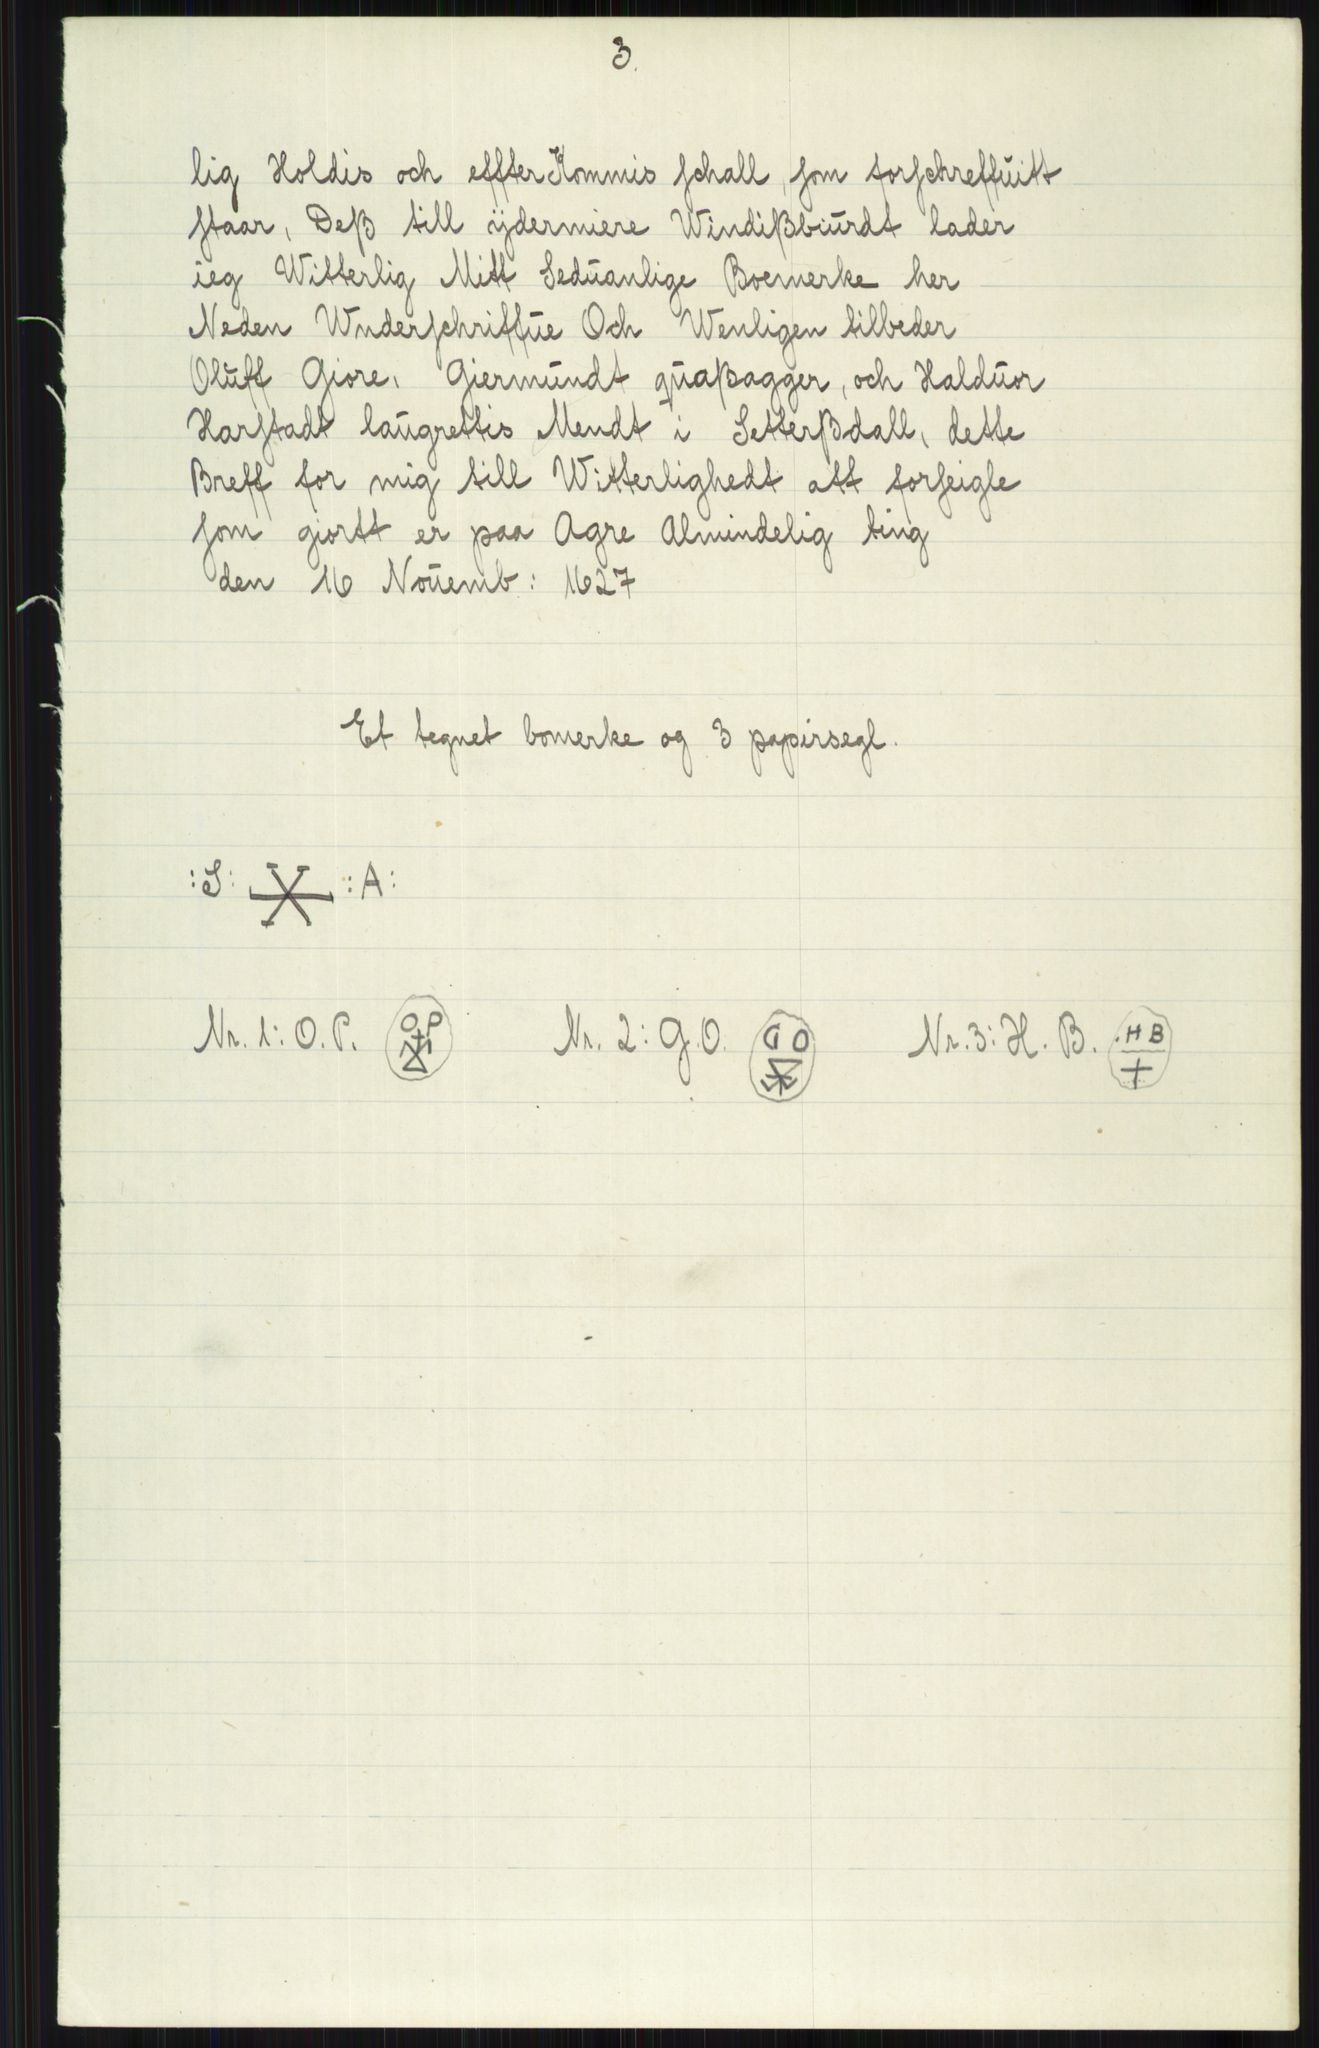 3.
lig Holdis och effterKommis schall, som forschreffuitt
staar, Deß till ÿdermiere Windißbiurdt lader
ieg Witterlig Mitt Seduanlige Boemerke her
Neden Wnderschriffue Och Wenligen tilbeder
Oluff Giore, Giermundt quaßagger, och Halduor
Harstadt laugrettis Mendt i Setterßdall, dette
Breff for mig till Witterlighedt att forseigle
som giortt er paa Agre Almindelig ting
den 16 Nouemb: 1627
Et tegnet bomerke og 3 papirsegl.
:S: :A:
Nr. 1: O.P. OP Nr. 2: G.O. GO Nr. 3: H. B. .HB